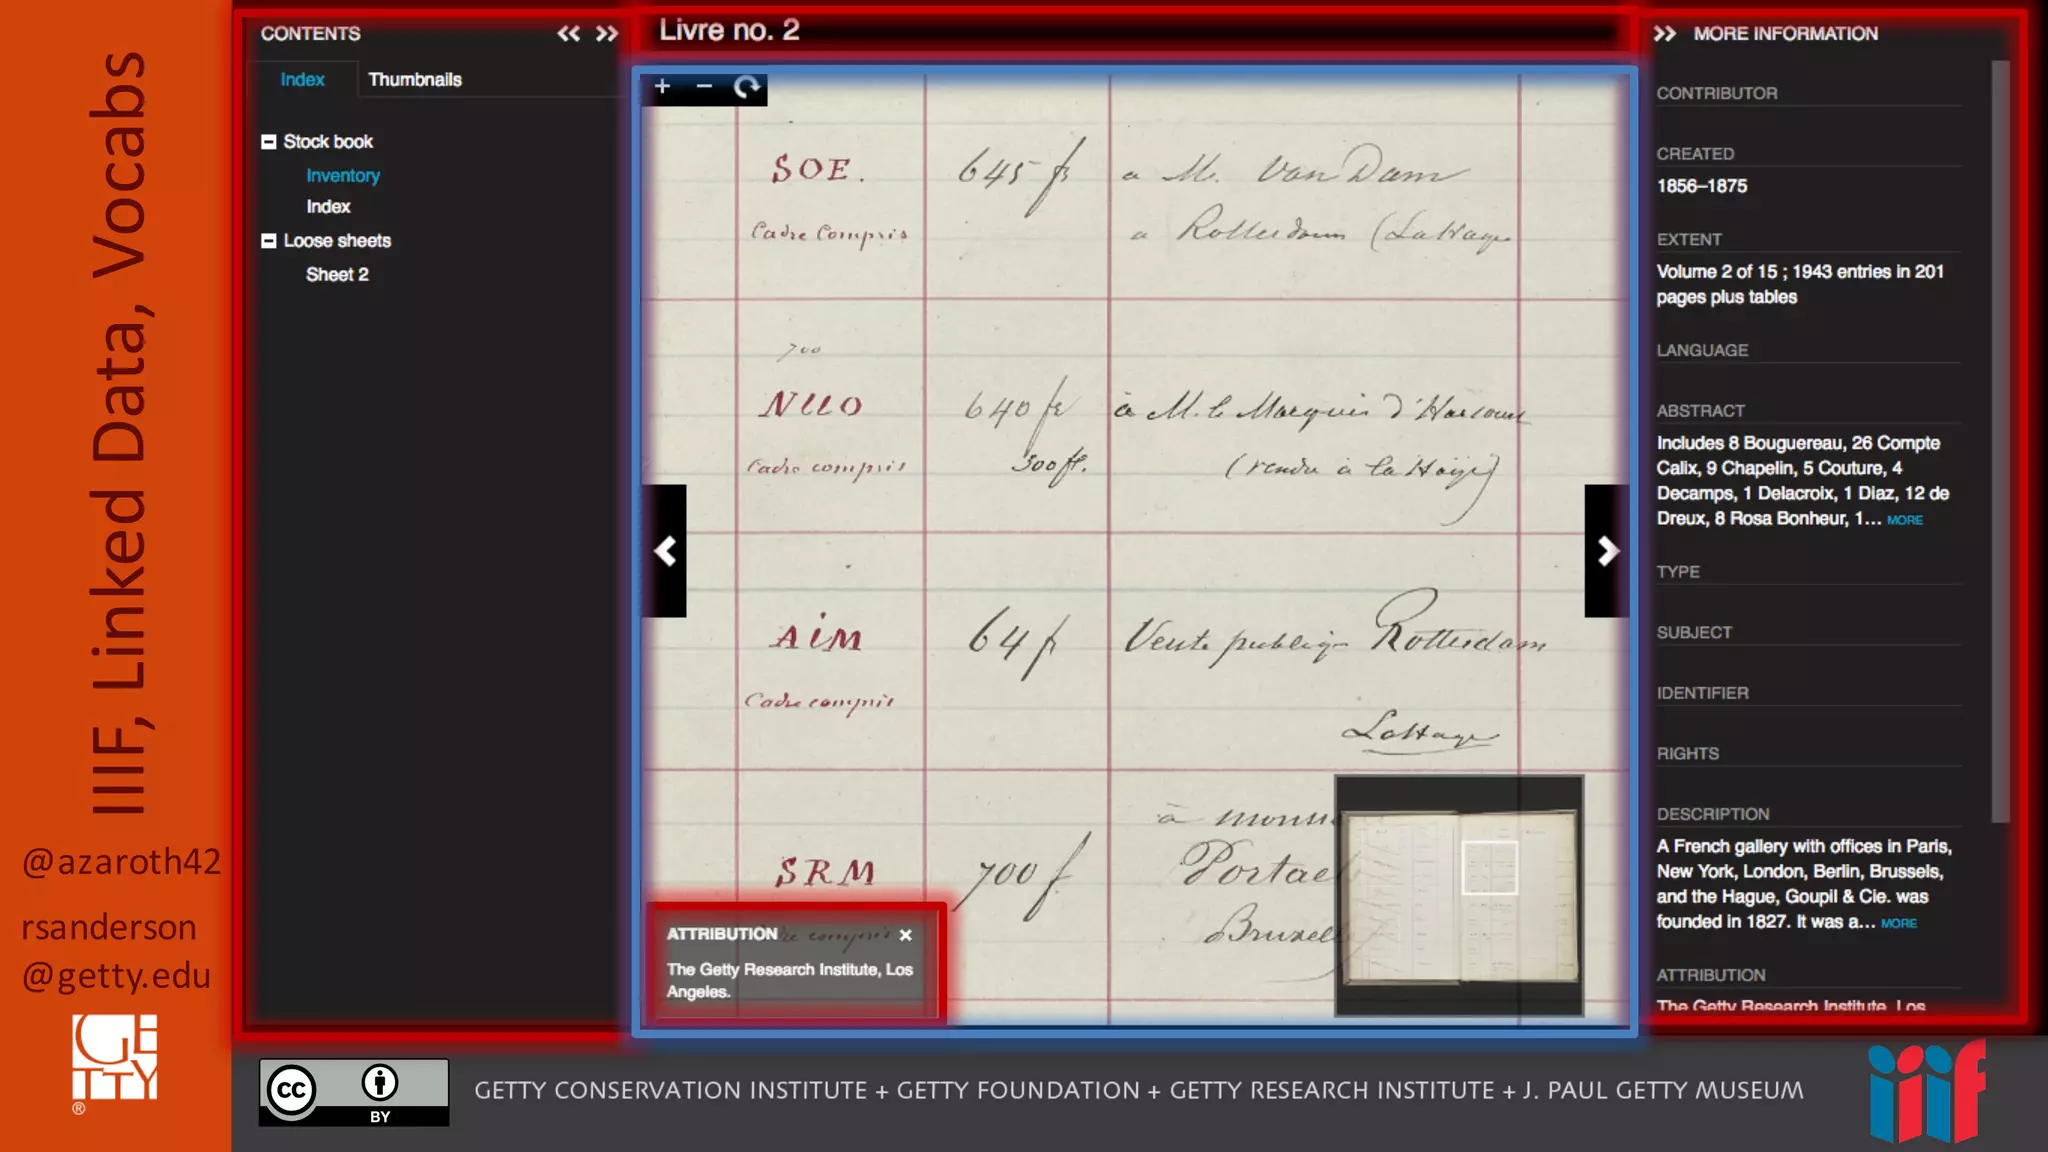 IIIF, Linked Data, Vocabs
@azaroth42
rsanderson
@getty.edu
GETTY
®
CONTENTS
Index Thumbnails
Stock book
Inventory
Index
Loose sheets
Sheet 2
Livre no. 2
SOE. 645 fr a M. Van Dam
Cadre Compris a Rotterdam (La Haye
700
NUO 640 fr à M. le Marquis d'Harcourt
Cadre compris 300 fl. (vendu à La Haye)
AiM 64 f Vente publique Rotterdam
Cadre compris
La Haye
à
SRM 700 f.
ATTRIBUTION
The Getty Research Institute, Los
Angeles.
MORE INFORMATION
CONTRIBUTOR
CREATED
1856–1875
EXTENT
Volume 2 of 15 ; 1943 entries in 201
pages plus tables
LANGUAGE
ABSTRACT
Includes 8 Bouguereau, 26 Compte
Calix, 9 Chapelin, 5 Couture, 4
Decamps, 1 Delacroix, 1 Diaz, 12 de
Dreux, 8 Rosa Bonheur, 1... MORE
TYPE
SUBJECT
IDENTIFIER
RIGHTS
DESCRIPTION
A French gallery with offices in Paris,
New York, London, Berlin, Brussels,
and the Hague, Goupil & Cie. was
founded in 1827. It was a... MORE
ATTRIBUTION
The Getty Research Institute, Los
cc BY
GETTY CONSERVATION INSTITUTE + GETTY FOUNDATION + GETTY RESEARCH INSTITUTE + J. PAUL GETTY MUSEUM
iiif